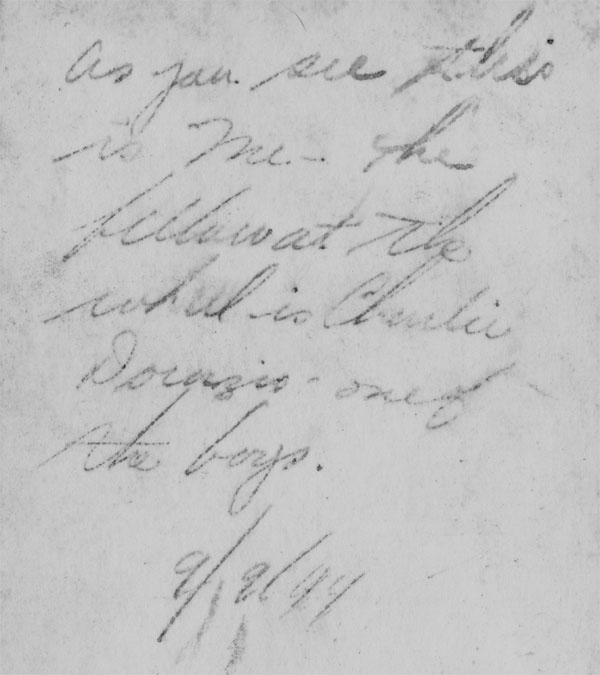 As you see this
is Me - the
fellow at the
wheel is Charlie
Dorazio - one of
the boys.
9/9/44